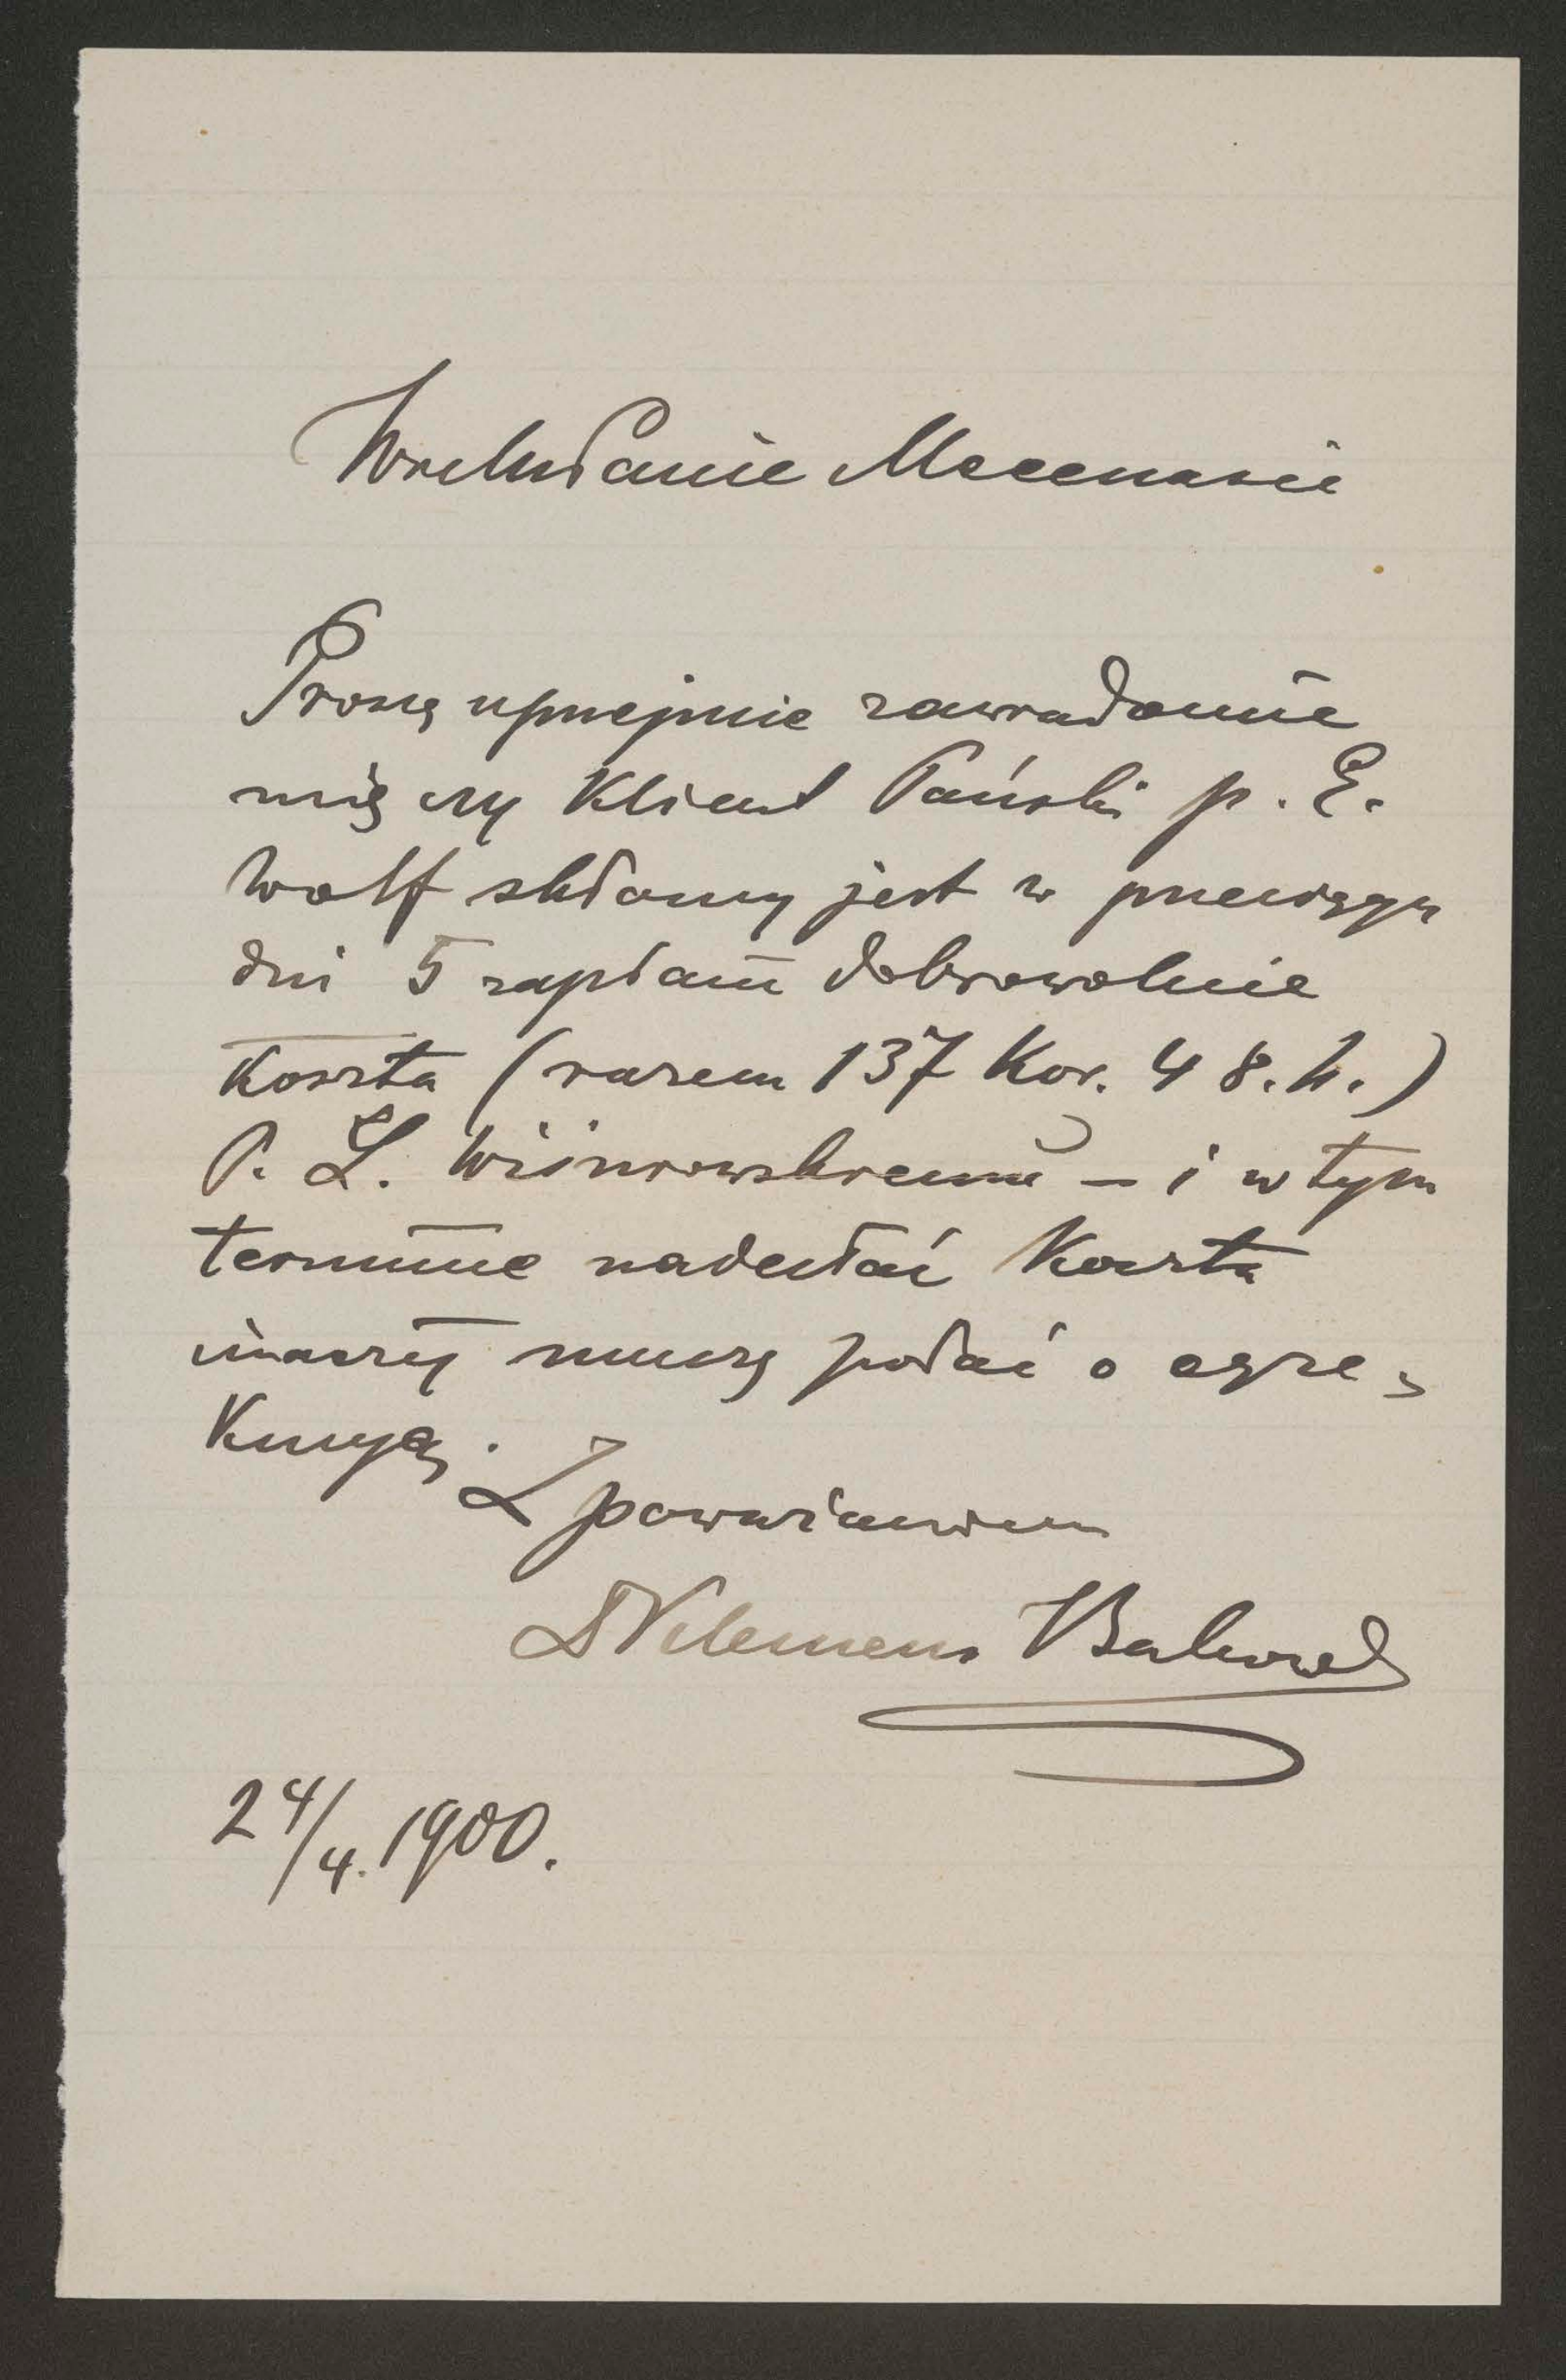 Wielm Panie Mecenasie
Proszę uprzejmie zawiadomić
mię czy Klient Pański p. E.
Wolf skłonny jest w przeciągu
dni 5 zapłacić dobrowolnie
Koszta (razem 137 Kor. 48. h.)
P. L. Wiśniowskiemu – i w tym
terminie nadesłać Koszta
inaczej muszę podać o egze-
Kucyę.
Z poważaniem
Dr Klemens
24/4. 1900.